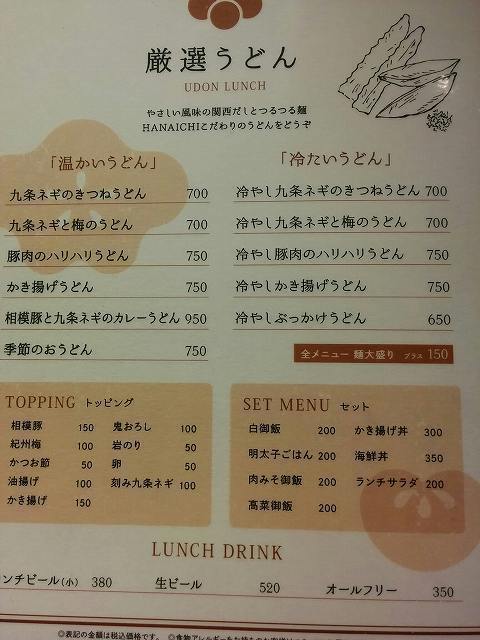 厳選うどん
UDON LUNCH
やさしい風味の関西だしとつるつる麺
HANAICHIこだわりのうどんをどうぞ
「温かいうどん」
九条ネギのきつねうどん 700
九条ネギと梅のうどん 700
豚肉のハリハリうどん 750
かき揚げうどん 750
相模豚と九条ネギのカレーうどん 950
季節のおうどん 750
「冷たいうどん」
冷やし九条ネギのきつねうどん 700
冷やし九条ネギと梅のうどん 700
冷やし豚肉のハリハリうどん 750
冷やしかき揚げうどん 750
冷やしぶっかけうどん 650
全メニュー 麺大盛り プラス 150
TOPPING トッピング
相模豚 150 鬼おろし 100
紀州梅 100 岩のり 50
かつお節 50 卵 50
油揚げ 100 刻み九条ネギ 100
かき揚げ 150
SET MENU セット
白御飯 200 かき揚げ丼 300
明太子ごはん 200 海鮮丼 350
肉みそ御飯 200 ランチサラダ 200
高菜御飯 200
LUNCH DRINK
ンチビール(小) 380 生ビール 520 オールフリー 350
◎表記の金額は税込価格です。